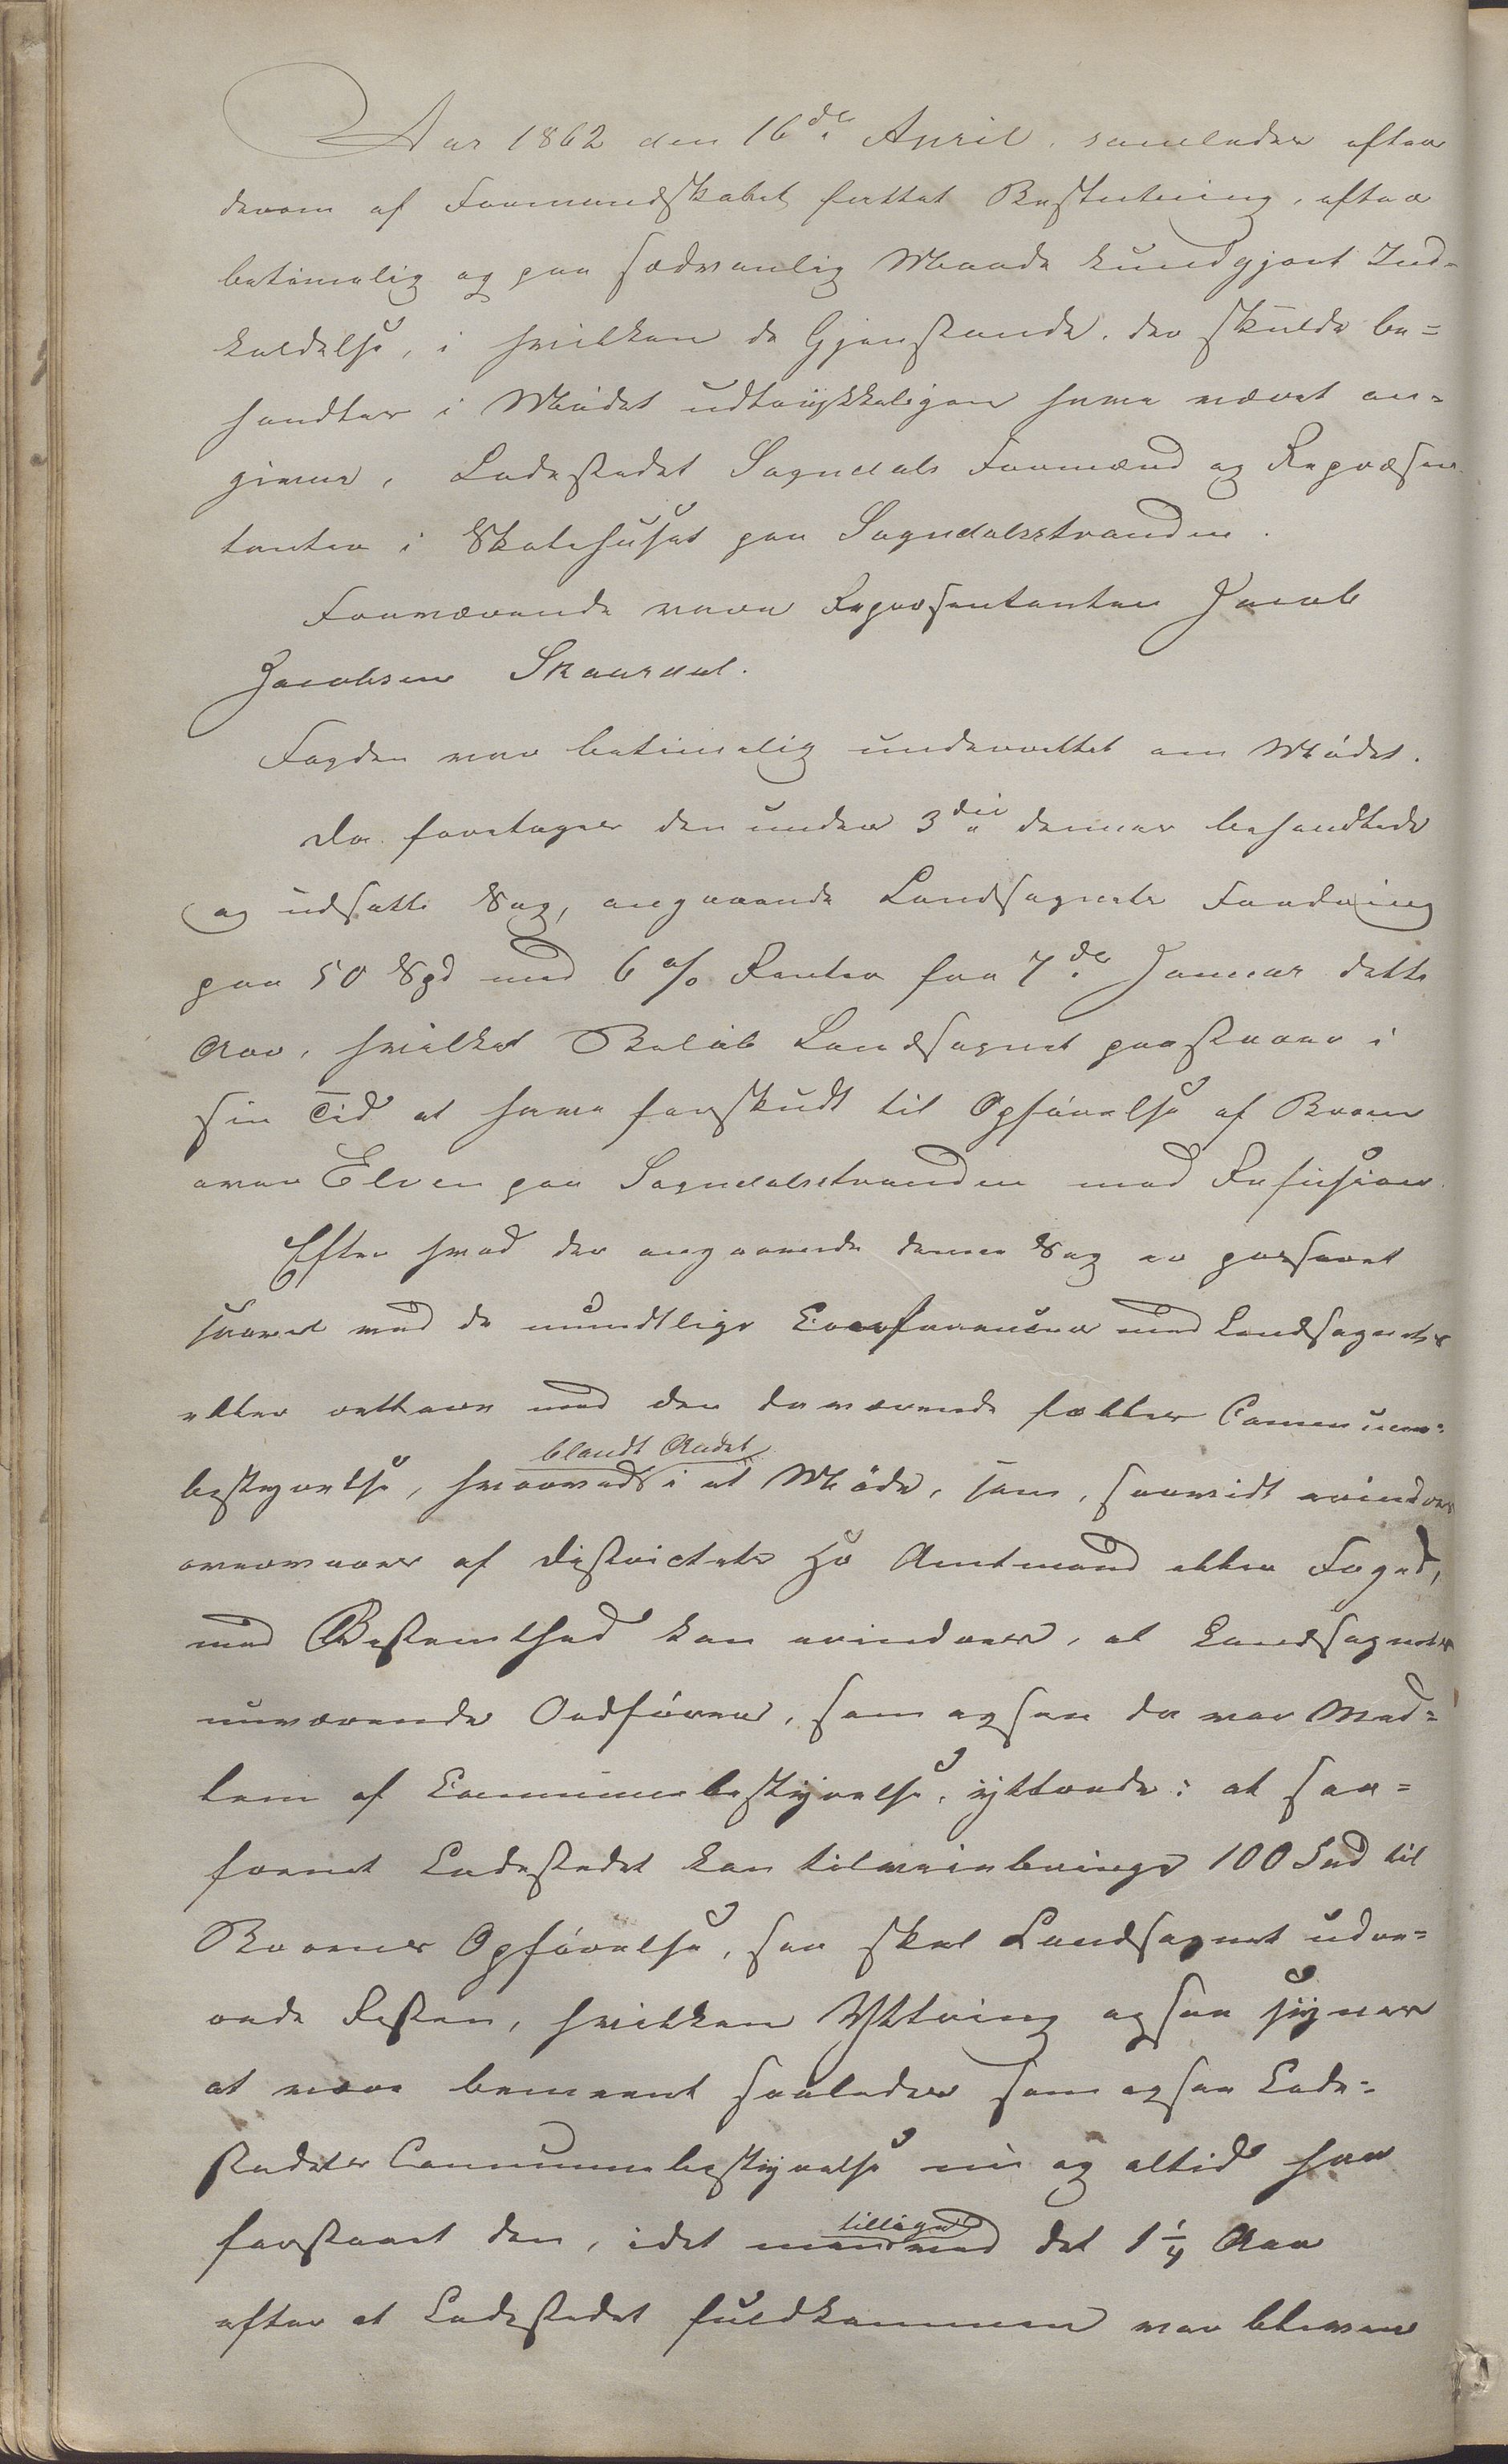 Aar 1862 den 16de April, samledes efter
derom af Formandskabet fattet Beslutning, efter
betimelig og paa sædvanlig Maade kundgjort Ind-
kaldelse, i hvilken de Gjenstande, der skulde be=
handles i Mødet udtrykkeligen have været an=
givne, Ladestedet Sogndals Formænd og Repræsen
tanter i Skolehuset paa Sogndalsstranden.
Fraværende vare Repræsentanten Jacob
Jacobsen Skaardal.
Fogden var betimelig underrettet om Mødet.
Da foretages den under 3die dennes behandlede
og udsatte Sag, angaaende Landsognets Fordring
paa 50 Spd med 6 % Renter fra 7de Januar dette
Aar, hvilket Beløb Landsognet paastaaer i
sin Tid at have forskudt til Opførelse af Broen
over Elven paa Sogndalsstranden mod Refusion.
Efter hvad der angaaende denne Sag er passeret
saavel med de mundtlige Conferencer med Landsognets
eller rettere med den daværende fælles Commune=
bestyrelse, hvorved blandt Andet i et Møde, som, saavidt erindres
overvaares af Districtets Hr Amtmand eller Foged,
med Bestemthed kan erindres, at Landsognets
nuværende Ordfører, som ogsaa da var Med=
lem af Communebestyrelse, yttrede: at saa=
fremt Ladestedet kan tilveiebringe 100 Spd til
Broens Opførelse, saa skal Landsognet udre=
rede Resten, hvilken Yttring ogsaa synes
at være bemeent saaledes som ogsaa Lade=
stedets Communebestyrelse nu og altid har
forstaaet den, idet man tilligemed det 1 1/4 Aar
efter at Ladestedet fuldkommen var bleven